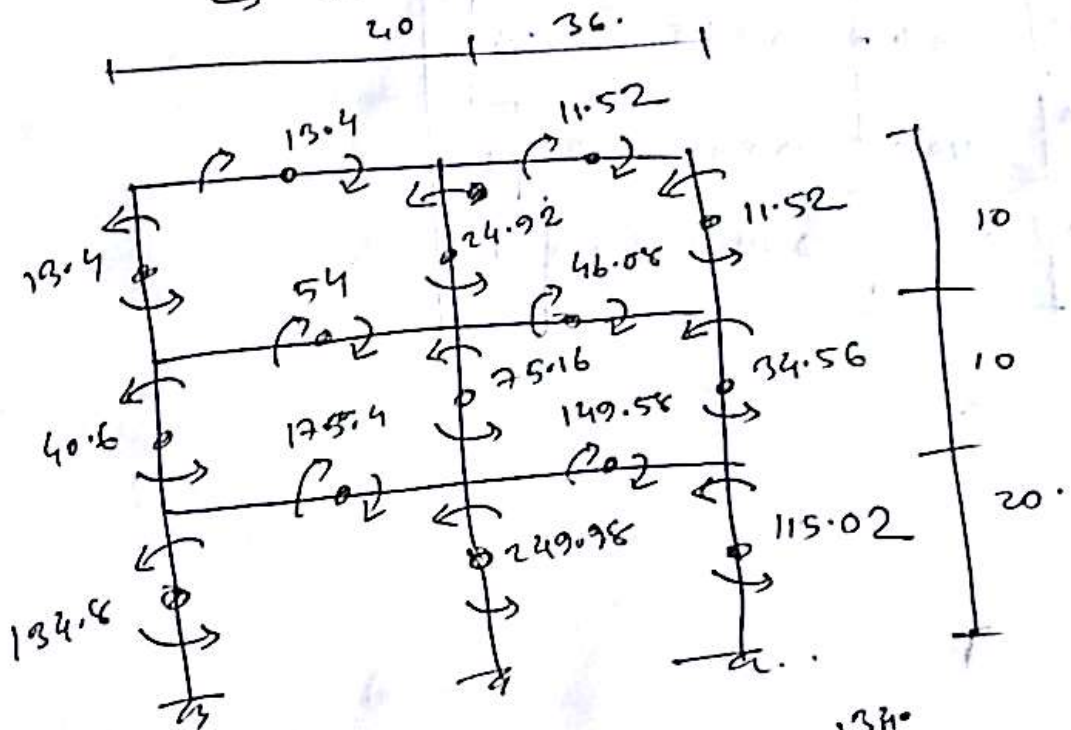 20 36.
13.4 11.52
13.4 24.92 11.52 10
54 46.08
40.6 75.16 34.56 10
175.4 149.58
134.8 249.98 115.02 20.